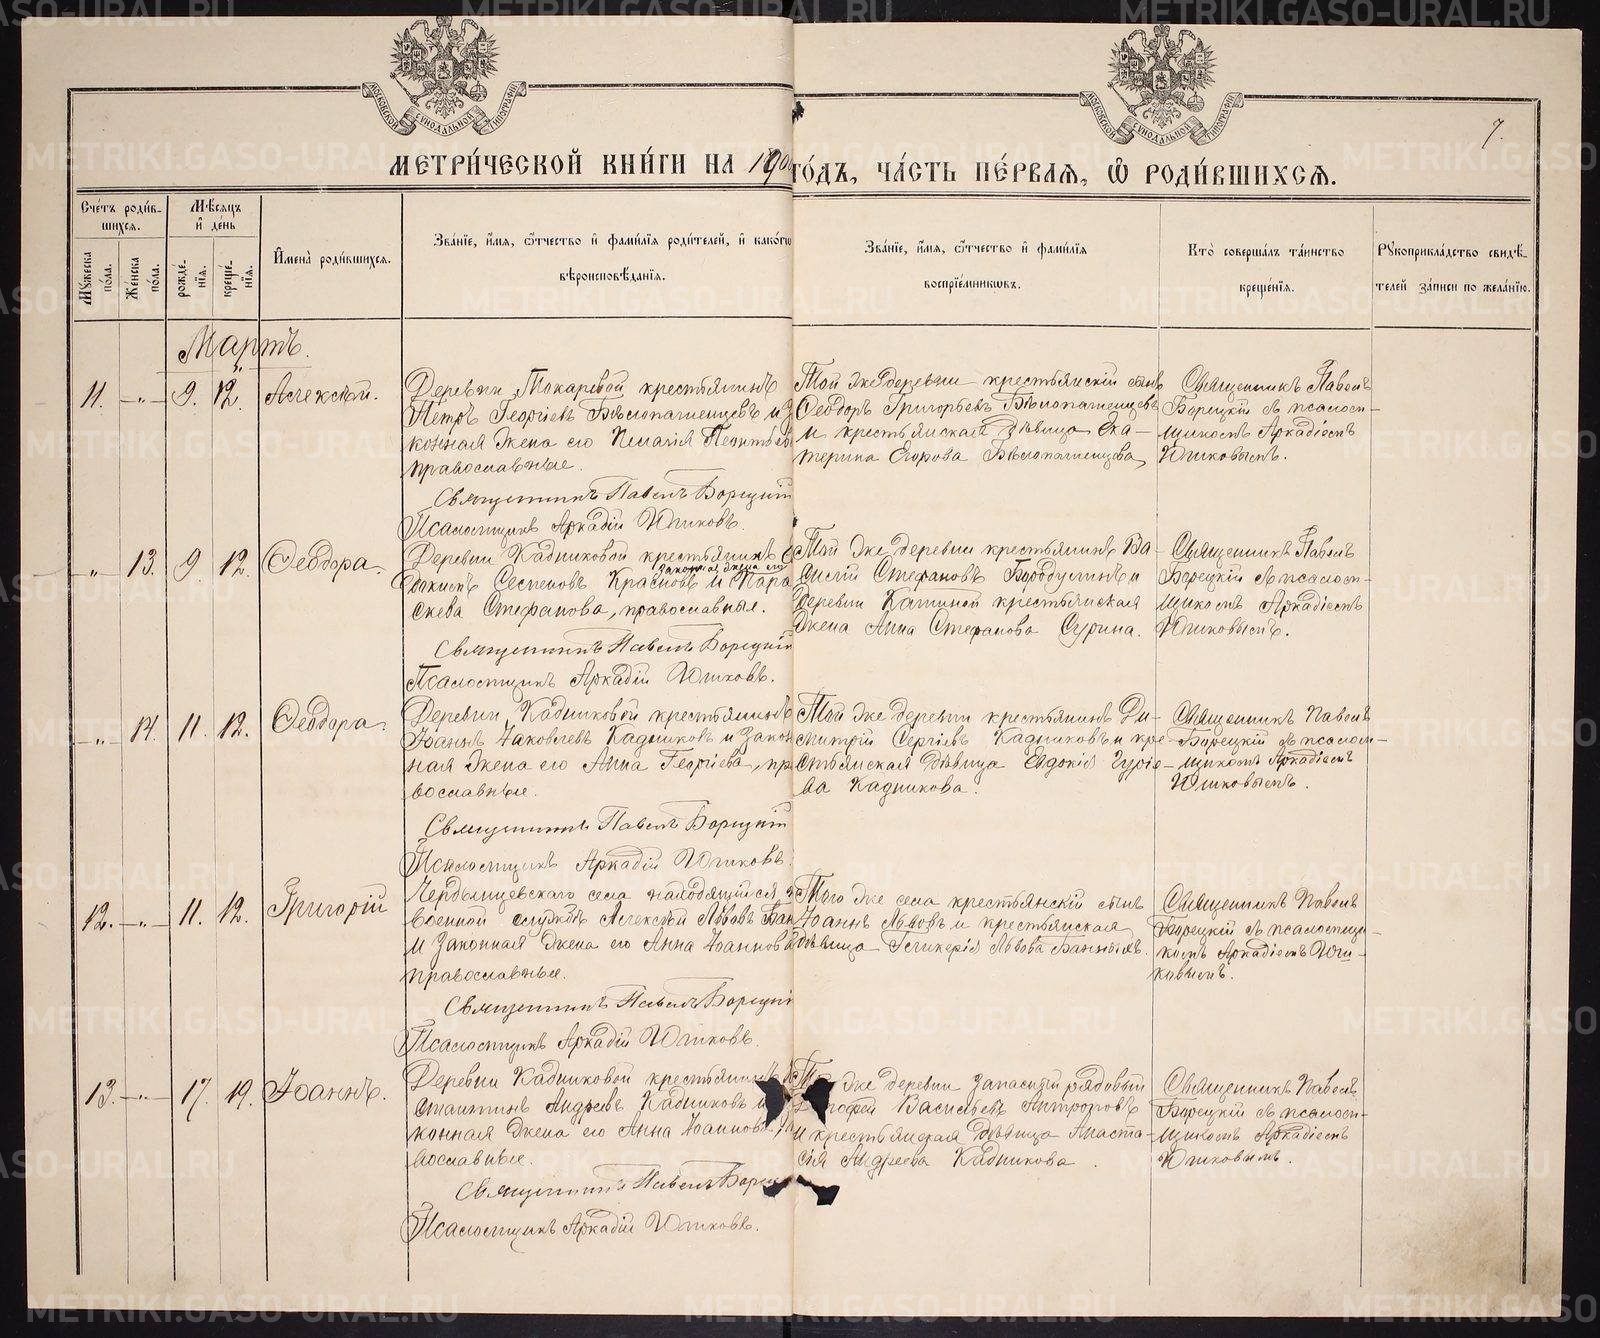 МЕТРИ́ЧЕСКОЙ КНИ́ГИ НА 190
ГО́ДЪ, ЧА́СТЬ ПЕ́РВАѦ, Ѡ҆ РОДИ́ВШИХСѦ.
7.
МОСКОВСКОЙ СѴНОДАЛЬНОЙ ТИПОГРАФІИ
МОСКОВСКОЙ СѴНОДАЛЬНОЙ ТИПОГРАФІИ
Сче́тъ роди́в-
шихсѧ.
Мꙋ́жеска по́ла.
Же́нска по́ла.
Мѣ́сѧцъ
и҆ де́нь
рожде́-
нїѧ.
креще́-
нїѧ.
И҆мена̀ роди́вшихсѧ.
Зва́нїе, и҆́мѧ, ѻ҆́тчество и҆ фами́лїѧ роди́телей, и҆ како́гѡ
вѣроисповѣ́данїѧ.
Зва́нїе, и҆́мѧ, ѻ҆́тчество и҆ фами́лїѧ
воспрїе́мникѡвъ.
Кто̀ соверша́лъ та́инство
креще́нїѧ.
Рꙋкоприкла́дство свидѣ́-
телей за́писи по жела́нїю.
Мартъ.
11. — „ — 9. 12. Алексѣй.
Деревни Токаревой крестьянинъ
Петръ Георгіевъ Бѣлопашенцевъ и за
конная жена его Пелагія
православные.
Священникъ Павелъ Борецкій
Псаломщикъ Аркадій Юшковъ.
Той же деревни крестьянскій сынъ
Ѳеодоръ Григорьевъ Бѣлопашенцевъ
и крестьянская дѣвица Ека-
терина Егорова Бѣлопашенцева,
Священникъ Павелъ
Борецкій съ псалом-
щикомъ Аркадіемъ
Юшковымъ.
— „ — 13. 9. 12. Ѳеодора.
Деревни Кадниковой крестьянинъ Е
вдокимъ Красновъ и законная жена его Пара
скева Стефанова, православныя.
Священникъ Павелъ Борецкій
Псаломщикъ Аркадій Юшковъ.
Той же деревни крестьянинъ Ва-
силій Стефановъ Бородулинъ и
деревни крестьянская
жена Анна Стефанова Сурина.
Священникъ Павелъ
Борецкій съ псалом-
щикомъ Аркадіемъ
Юшковымъ.
— „ — 14. 11. 12. Ѳеодора.
Деревни Кадниковой крестьянинъ
Іоаннъ Іаковлевъ Кадниковъ и закон
ная жена его Анна Георгіева, пра
вославные.
Священникъ Павелъ Борецкій
Псаломщикъ Аркадій Юшковъ.
Той же деревни крестьянинъ Ди-
митрій Сергіевъ Кадниковъ и кре-
стьянская дѣвица Евдокія Гуріе-
ва Кадникова.
Священникъ Павелъ
Борецкій съ псалом-
щикомъ Аркадіемъ
Юшковымъ.
12. — „ — 11. 12. Григорій
села находящійся въ
военной службѣ Алексѣй Львовъ Бан
и законная жена его Анна Іоаннова
православные.
Священникъ Павелъ Борецкій
Псаломщикъ Аркадій Юшковъ.
Того же села крестьянскій сынъ
Іоаннъ Львовъ и крестьянская
дѣвица Гликерія Львова Банныхъ.
Священникъ Павелъ
Борецкій съ псаломщи-
комъ Аркадіемъ Юш-
ковымъ.
13. — „ — 17. 19. Іоаннъ.
Деревни Кадниковой крестьянинъ Ко
стантинъ Андреевъ Кадниковъ и
конная жена его Анна Іоаннова, пра
вославные.
Священникъ Павелъ Борец
Псаломщикъ Аркадій Юшковъ.
же деревни запасный рядовый
Васильевъ Антроповъ
и крестьянская дѣвица Анаста-
сія Андреева Кадникова.
Священникъ Павелъ
Борецкій съ псалом-
щикомъ Аркадіемъ
Юшковымъ.
METRIKI.GASO-URAL.RU